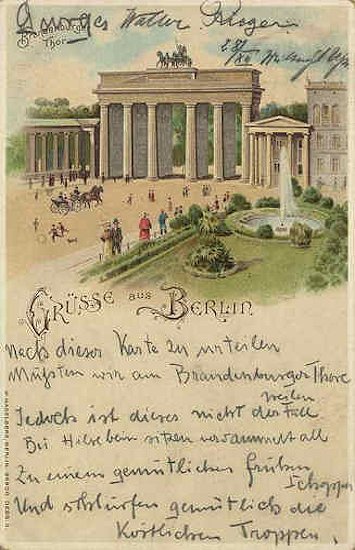 Brandenburger
Thor
Walter
GRÜSSE aus BERLIN
Nach dieser Karte zu urteilen
Müssten wir am Brandenburger Thore
weilen
Jedoch ist dieses nicht der Fall
Bei Hilsebein sitzen versammelt all
Zu einem gemütlichen frühen
Schoppen
Und schlürfen gemütlich die
Köstlichen Troppen.